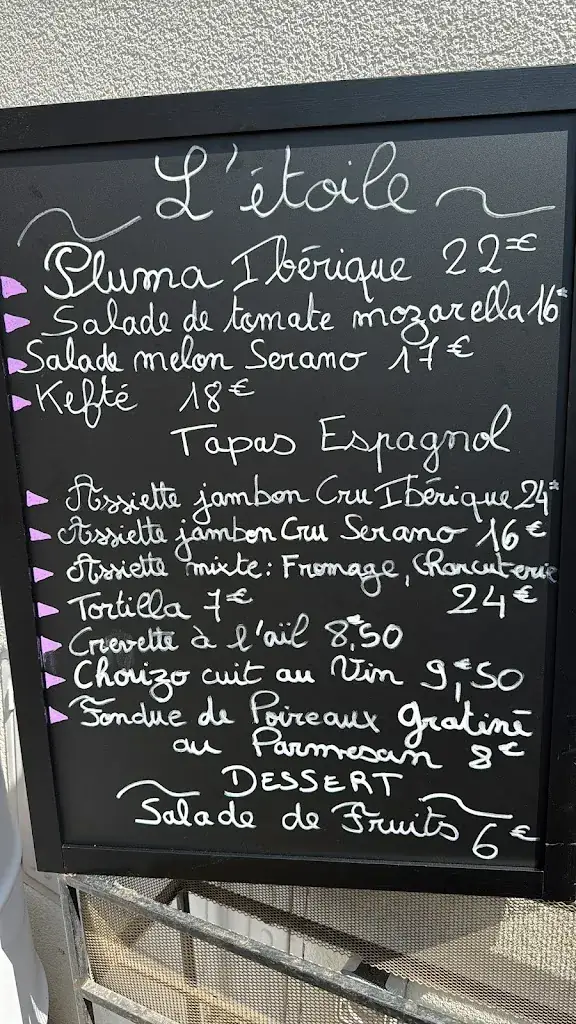 L'étoile
Pluma Ibérique 22€
Salade de tomate mozarella 16€
Salade melon Serano 17€
Kefté 18€
Tapas Espagnol
Assiette jambon Cru Ibérique 24€
Assiette jambon Cru Serano 16€
Assiette mixte: Fromage, Charcuterie
Tortilla 7€ 24€
Crevette à l'aïl 8,€50
Chorizo cuit au Vin 9,€50
Fondue de Poireaux gratiné
au Parmesan 8€
DESSERT
Salade de Fruits 6€